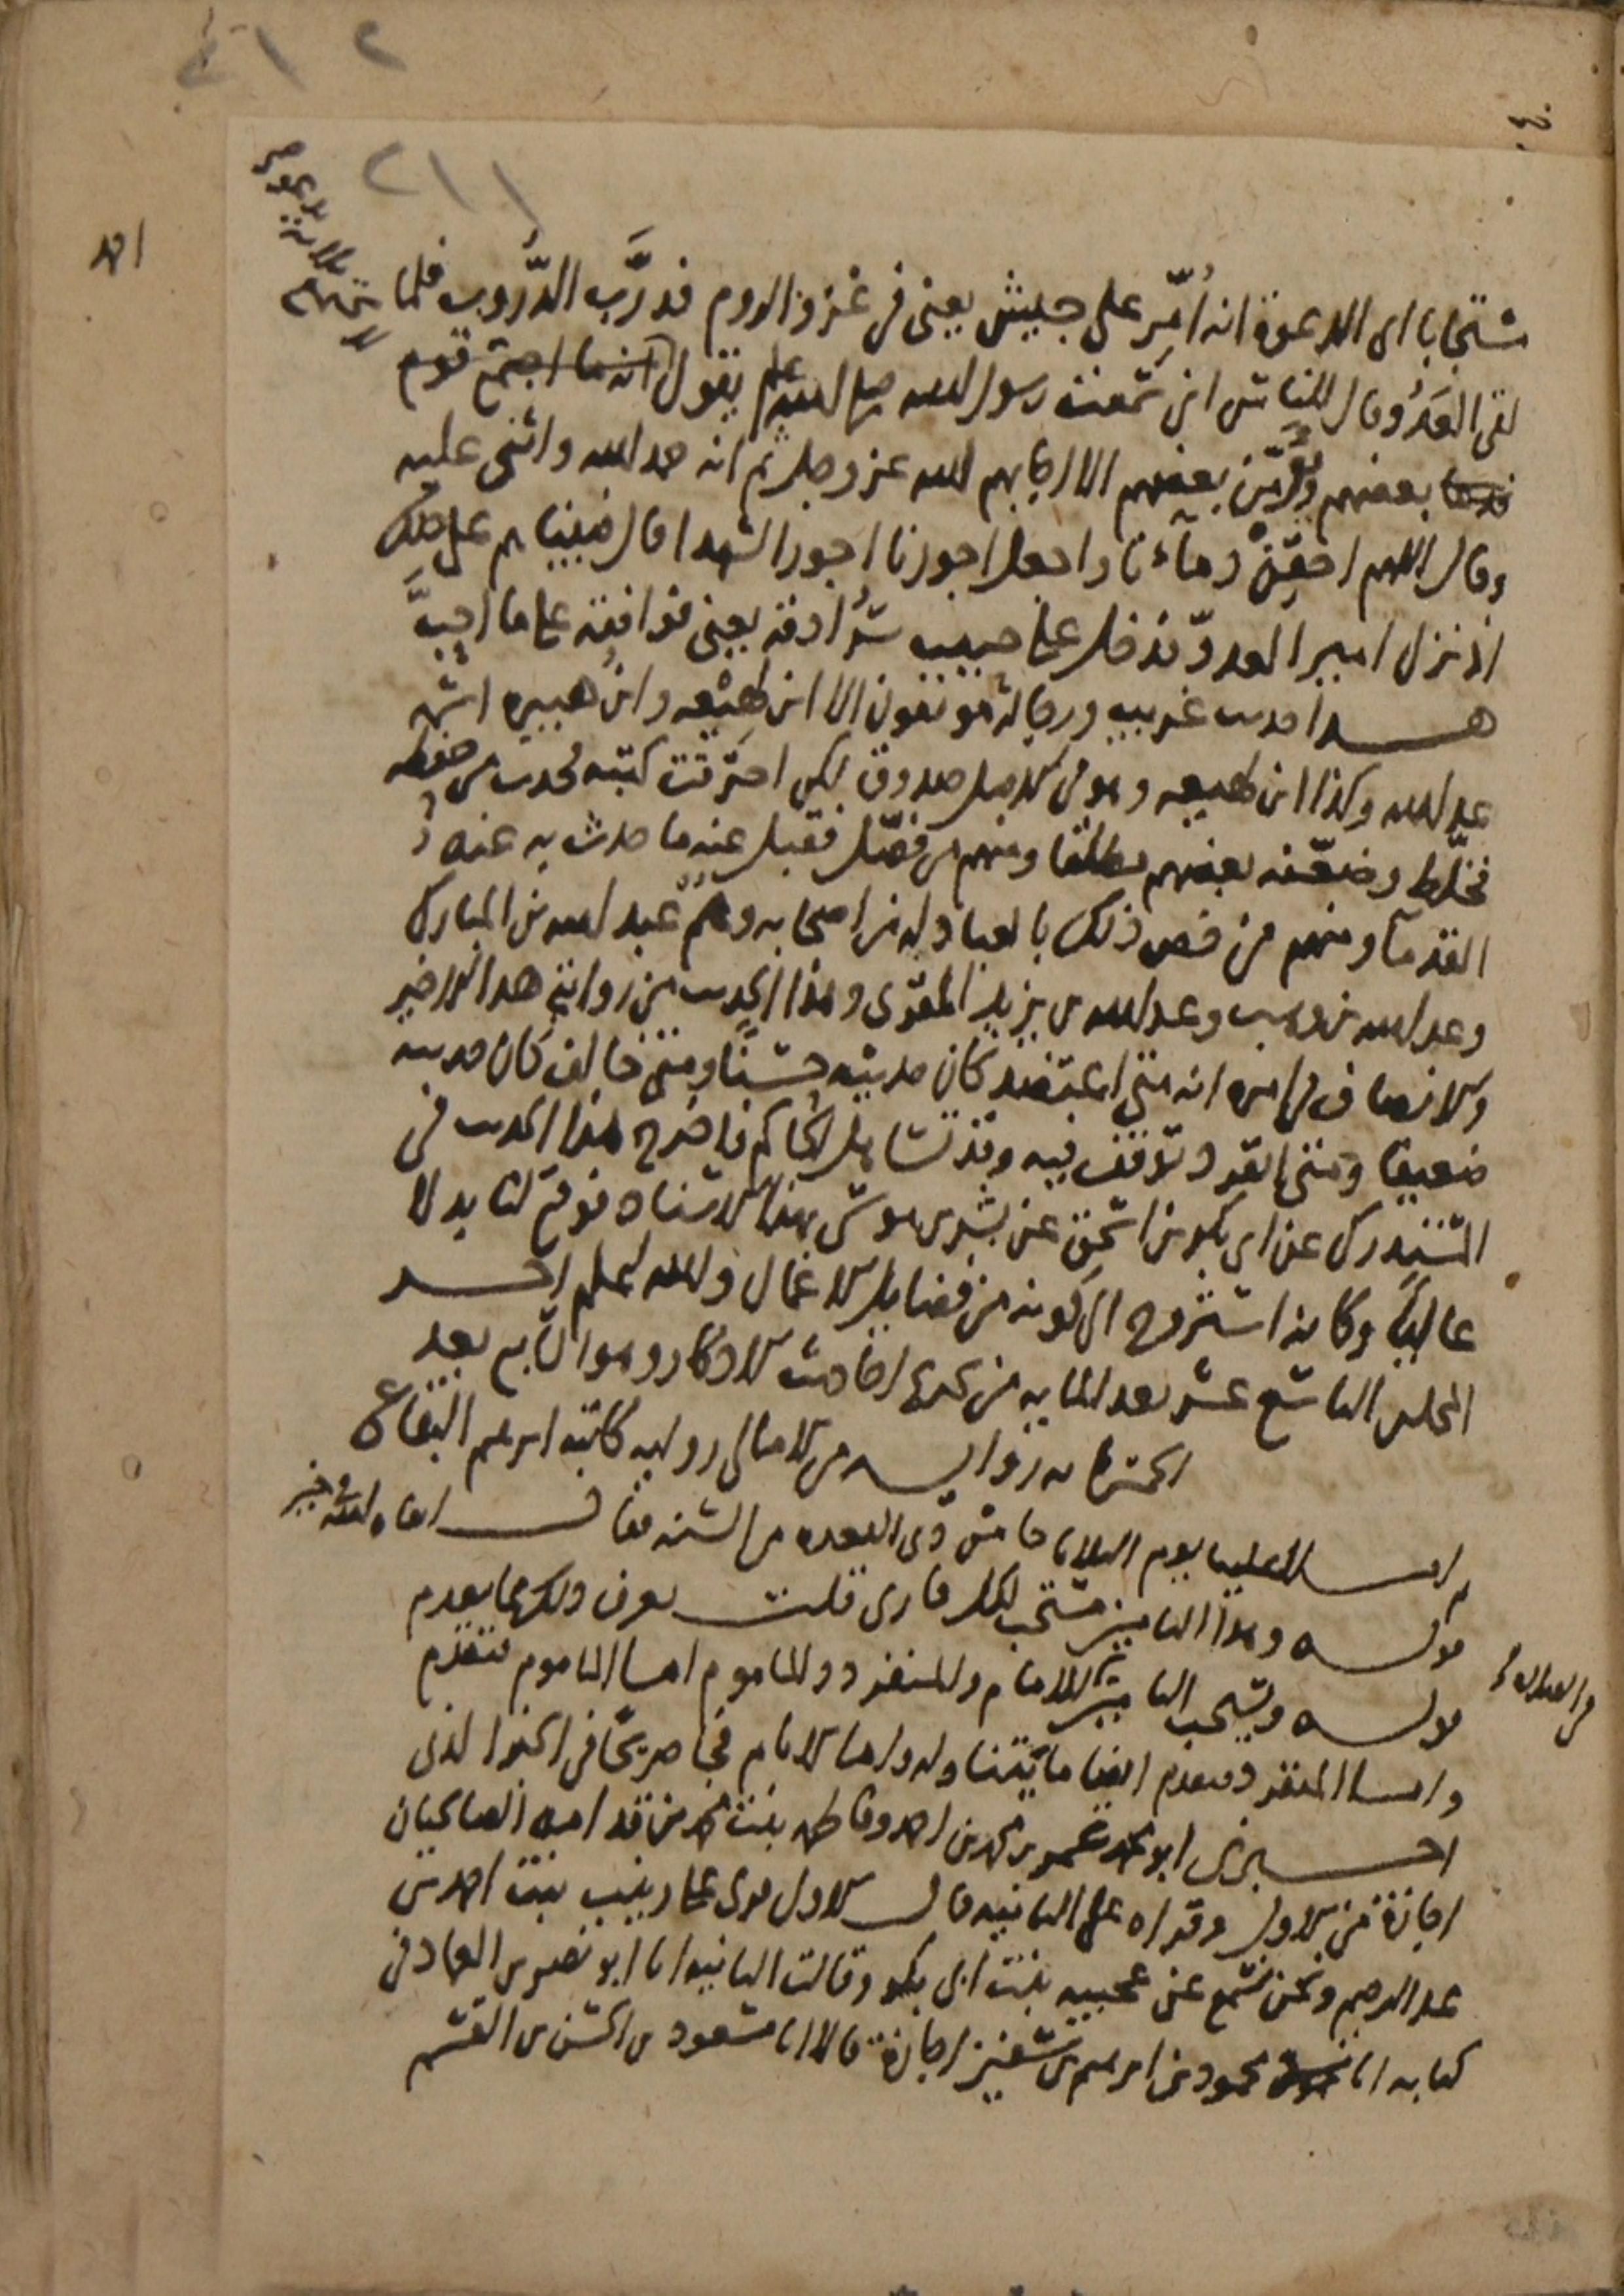 ٢١٢
٢١١
احد
مستجابا اى الدعوة انه اُمِّر على جيش يعنى فى غزو الروم فدرَّب الدُّروب فلما
لقى العدُو قال للناس انى سمعت رسول الله صلى الله عليه وسلم يقول
بعضهم ويُؤمِّن بعضهم الا اجابهم الله عز وجل ثم انه حمد الله واثنى عليه
وقال اللهم احقِنْ دمآءنا واجعل اجورنا اجور الشهدا قال فبيناهم على ذلك
اذ نزل امير العدوّ فدخل على حبيب سُرادقه يعنى فوافقه على ما احبَّ
هذا حديث غريب ورجاله موثقون الا ابن لهيعه وابن هبيره اسمه
عبد الله وكذا ابن لهيعه وهو فى الاصل صدوق لكن احترقت كتبه فحدث من حفظه
فخلّط وضعّفه بعضهم مطلقا ومنهم من فصّل فقبل عنه ما حدث به عنه
القدمآ ومنهم من خص ذلك بالعبادله من اصحابه وهم عبد الله بن المبارك
وعبد الله بن وهب وعبد الله بن يزيد المقرى وهذا الحديث من رواية هذا الاخير
والانصاف فى امره انه متى اعتضد كان حديثه حسنًا ومتى خالف كان حديثه
ضعيفا ومتى انفرد توقف فيه وقد تساهل الحاكم فاخرج هذا الحديث فى
المستدرك عن ابى بكر بن اسحق عن بشر بن موسى بهذا الاسناد فوقع لنا بدلا
عاليًا وكانه استروح الى كونه من فضايل الاعمال والله اعلم اخـر
المجلس التاسع عشر بعد المايه من تخريج احاديث الاذكار وهو التاسع بعد
من الامالى روايه كاتبه ابراهيم البقاعى
يوم الثلاثا خامس ذى القعده من السنه فقال
قولـه وهذا التامين مستحب لكل قارى قلت يعرف دليله مما تقدم
قولـه ويستحب التامين للامام والمنفرد والماموم اما الماموم فتقدم
واما المنفرد فتقدم ايضا ما يتناوله واما الامام فجا صريحًا فى الخبر الذى
اخـبرنى ابو محمد عمر بن محمد بن احمد وفاطمه بنت محمد بن قدامه الصالحيان
اجازة من الاول وقراه على الثانيه قال الاول قرى على زينب بنت احمد بن
عبد الرحيم ونحن نسمع عن عجيبه بنت ابى بكر وقالت الثانيه انا ابو نصر بن العماد فى
كتابه انا محمود بن ابراهيم بن سفين اجازة قالا انا مسعود بن الحسن بن القسم